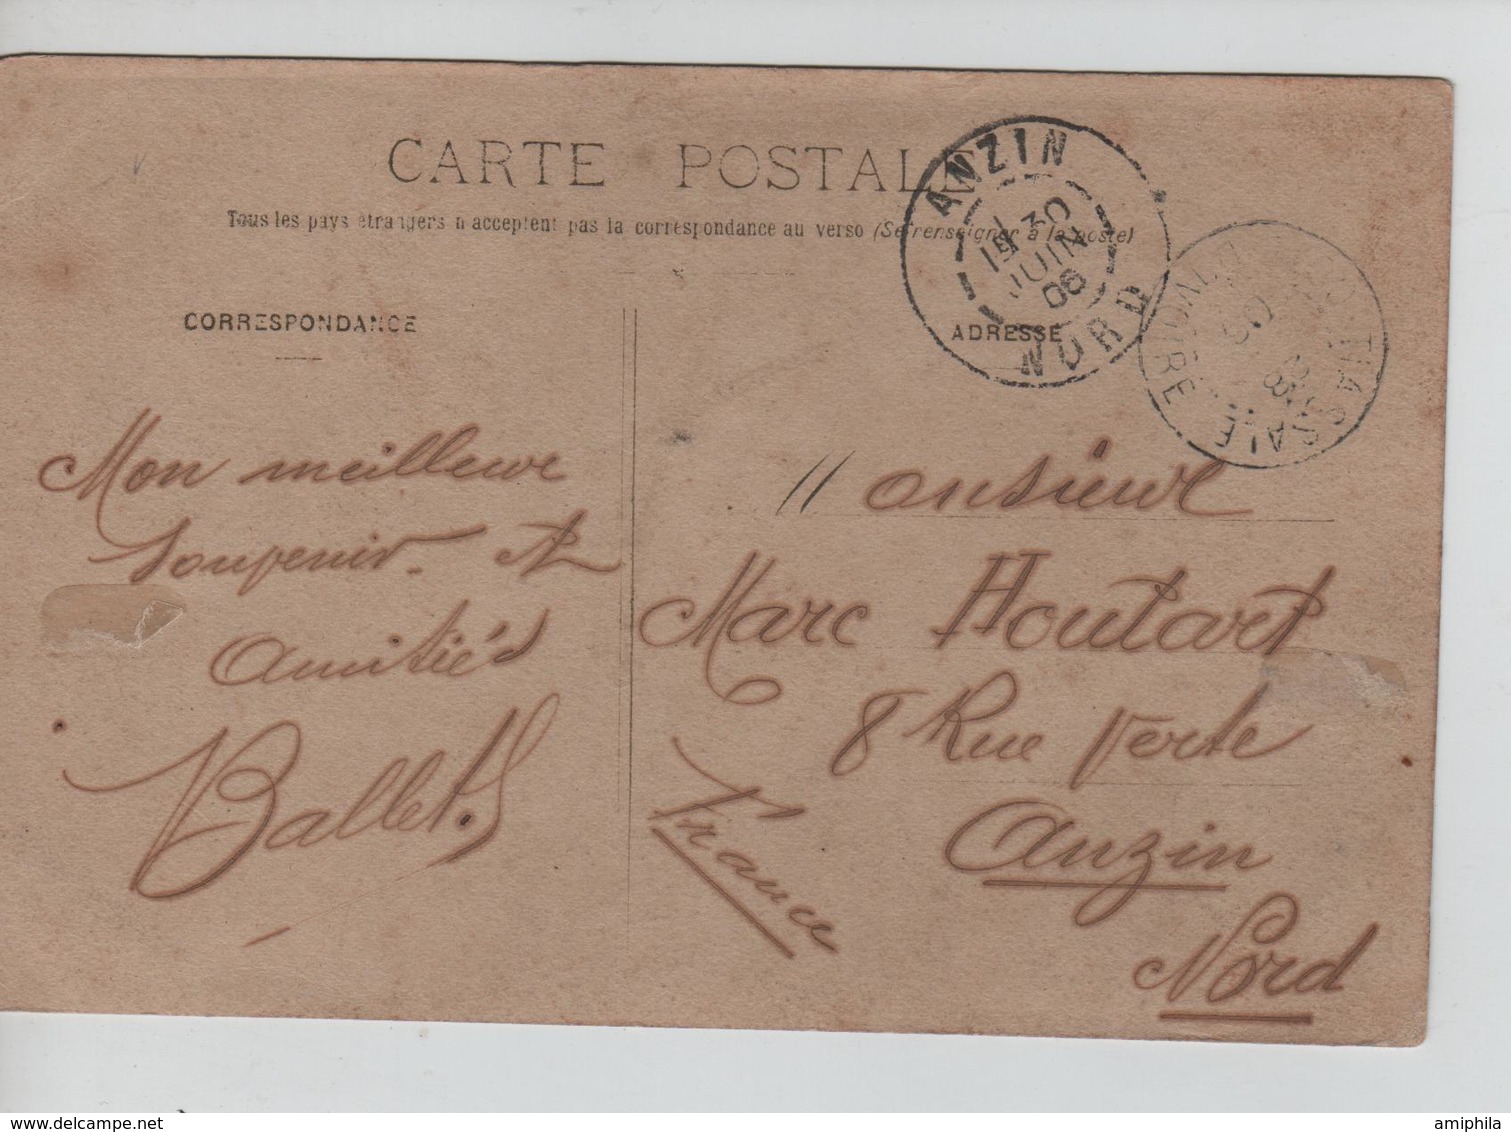 CARTE POSTALE
Tous les pays étrangers n'acceptent pas la correspondance au verso (Se renseigner à la poste)
CORRESPONDANCE
ADRESSE
ANZIN
30
JUIN
06
NORD
TIASSALE
D'IVOIRE
Mon meilleur
souvenir. et
amitiés
Ballet.
Monsieur
Marc Houtart
8 Rue Verte
Anzin
Nord
France
www.delcampe.net
amiphila